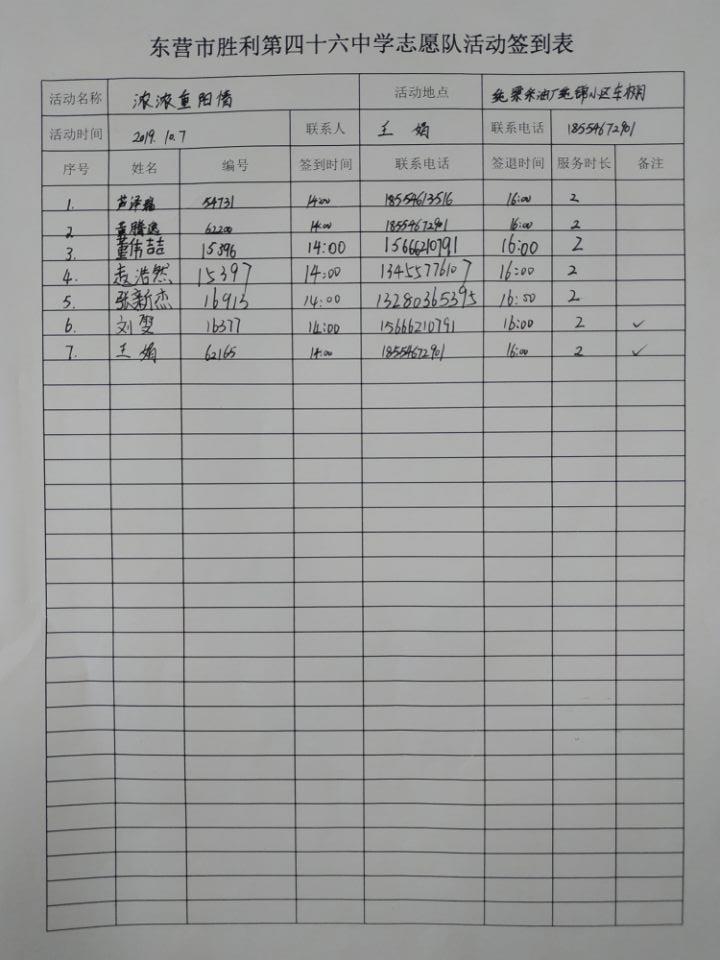 东营市胜利第四十六中学志愿队活动签到表
活动名称 浓浓重阳情 活动地点 纯梁采油厂纯锦小区车棚
活动时间 2019.10.7 联系人 王娟 联系电话 18554672901
序号 姓名 编号 签到时间 联系电话 签退时间 服务时长 备注
1. 54731 14:00 18554613516 16:00 2
2 62200 14:00 18554672901 16:00 2
3. 董伟喆 15396 14:00 15666210791 16:00 2
4. 赵浩然 15397 14:00 13455776107 16:00 2
5. 张新杰 16913 14:00 13280365395 16:00 2
6. 刘 16377 14:00 15666210791 16:00 2 ✓
7. 王娟 62165 14:00 18554672901 16:00 2 ✓